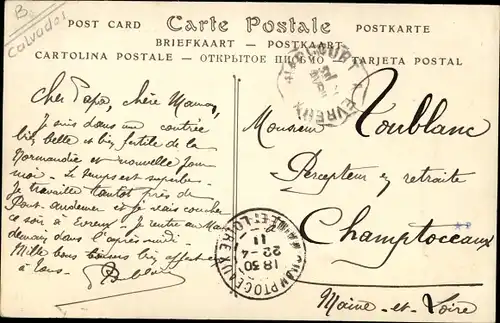 B.
Calvados
POST CARD Carte Postale POSTKARTE
BRIEFKAART — POSTKAART
CARTOLINA POSTALE — ОТКРЫТОЕ ПИСЬМО — TARJETA POSTAL
Cher Papa, chère Maman,
Je suis dans une contrée
bien belle et bien fertile de la
Normandie et nouvelle pour
moi. Le temps est superbe.
Je travaille tantôt près de
Pont-Audemer et je vais coucher
ce soir à Evreux. Je rentre au Mans
demain dans l'après-midi
Mille bons baisers bien affectueux
à tous.
HARCOURT A EVREUX
Monsieur Toublanc
Percepteur en retraite
à
Champtoceaux
Maine-et-Loire
CHAMPTOCEAUX MAINE-ET-LOIRE
18 30
22-4
11